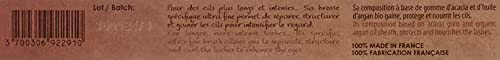 Lot / Batch:
3 700306 922910
Pour des cils plus longs et intenses. Sa brosse
spécifique ultra fine permet de séparer, structurer
et gainer les cils pour intensifier le regard.
For longer, more intense lashes. Its specific,
ultra-fine brush allows you to separate, structure
and curl the lashes to enhance the eyes.
Sa composition à base de gomme d'acacia et d'huile
d'argan bio gaine, protège et nourrit les cils.
Its composition based on acacia gum and organic
argan oil sheaths, protects and nourishes the lashes.
100% MADE IN FRANCE
100% FABRICATION FRANÇAISE